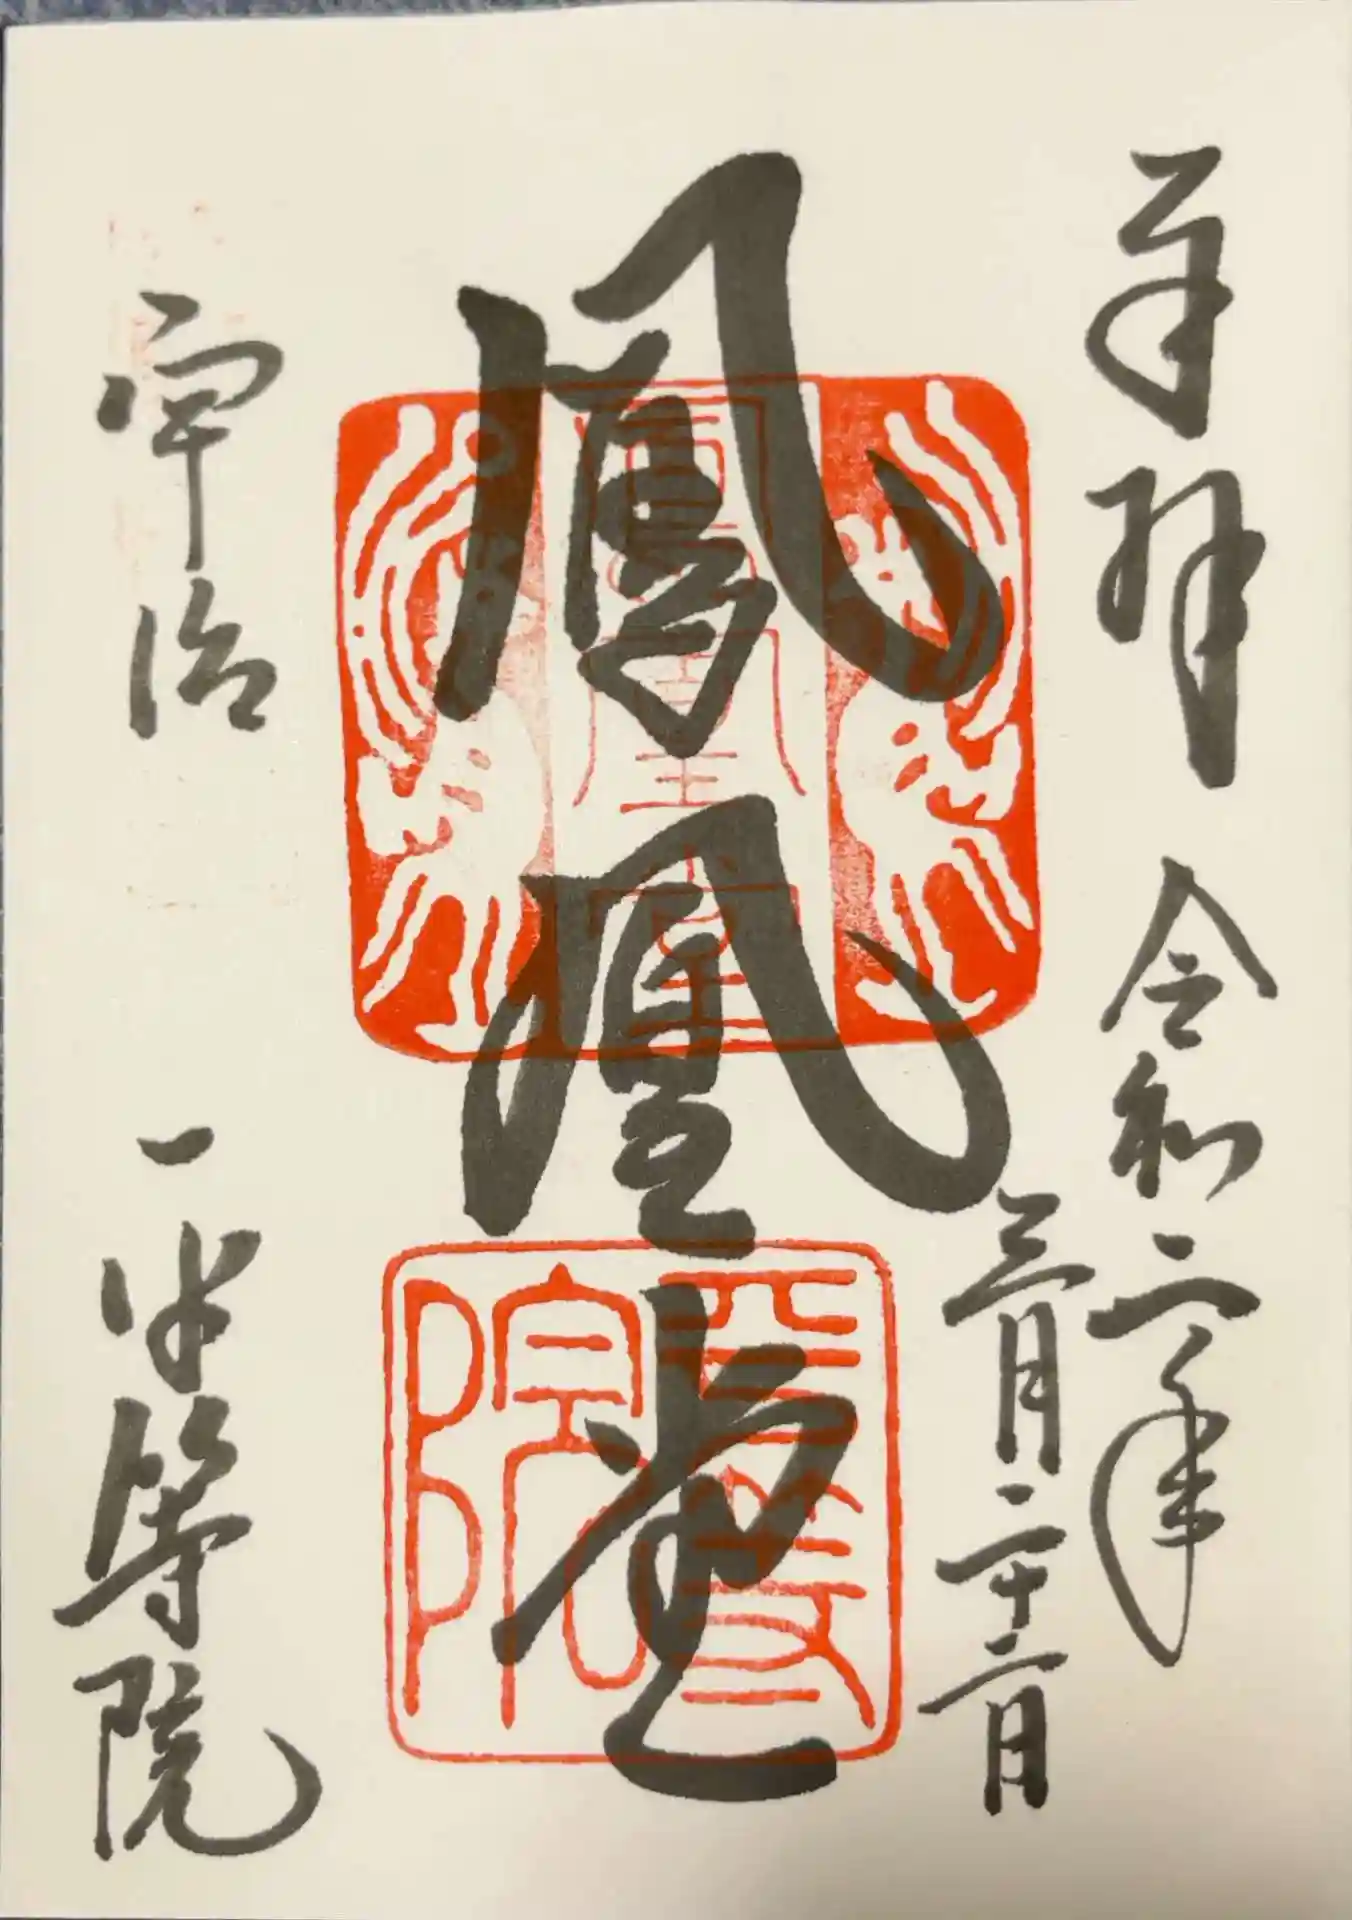 奉拝 令和二年
三月二十二日
鳳凰堂
鳳凰堂
平等院
宇治 平等院